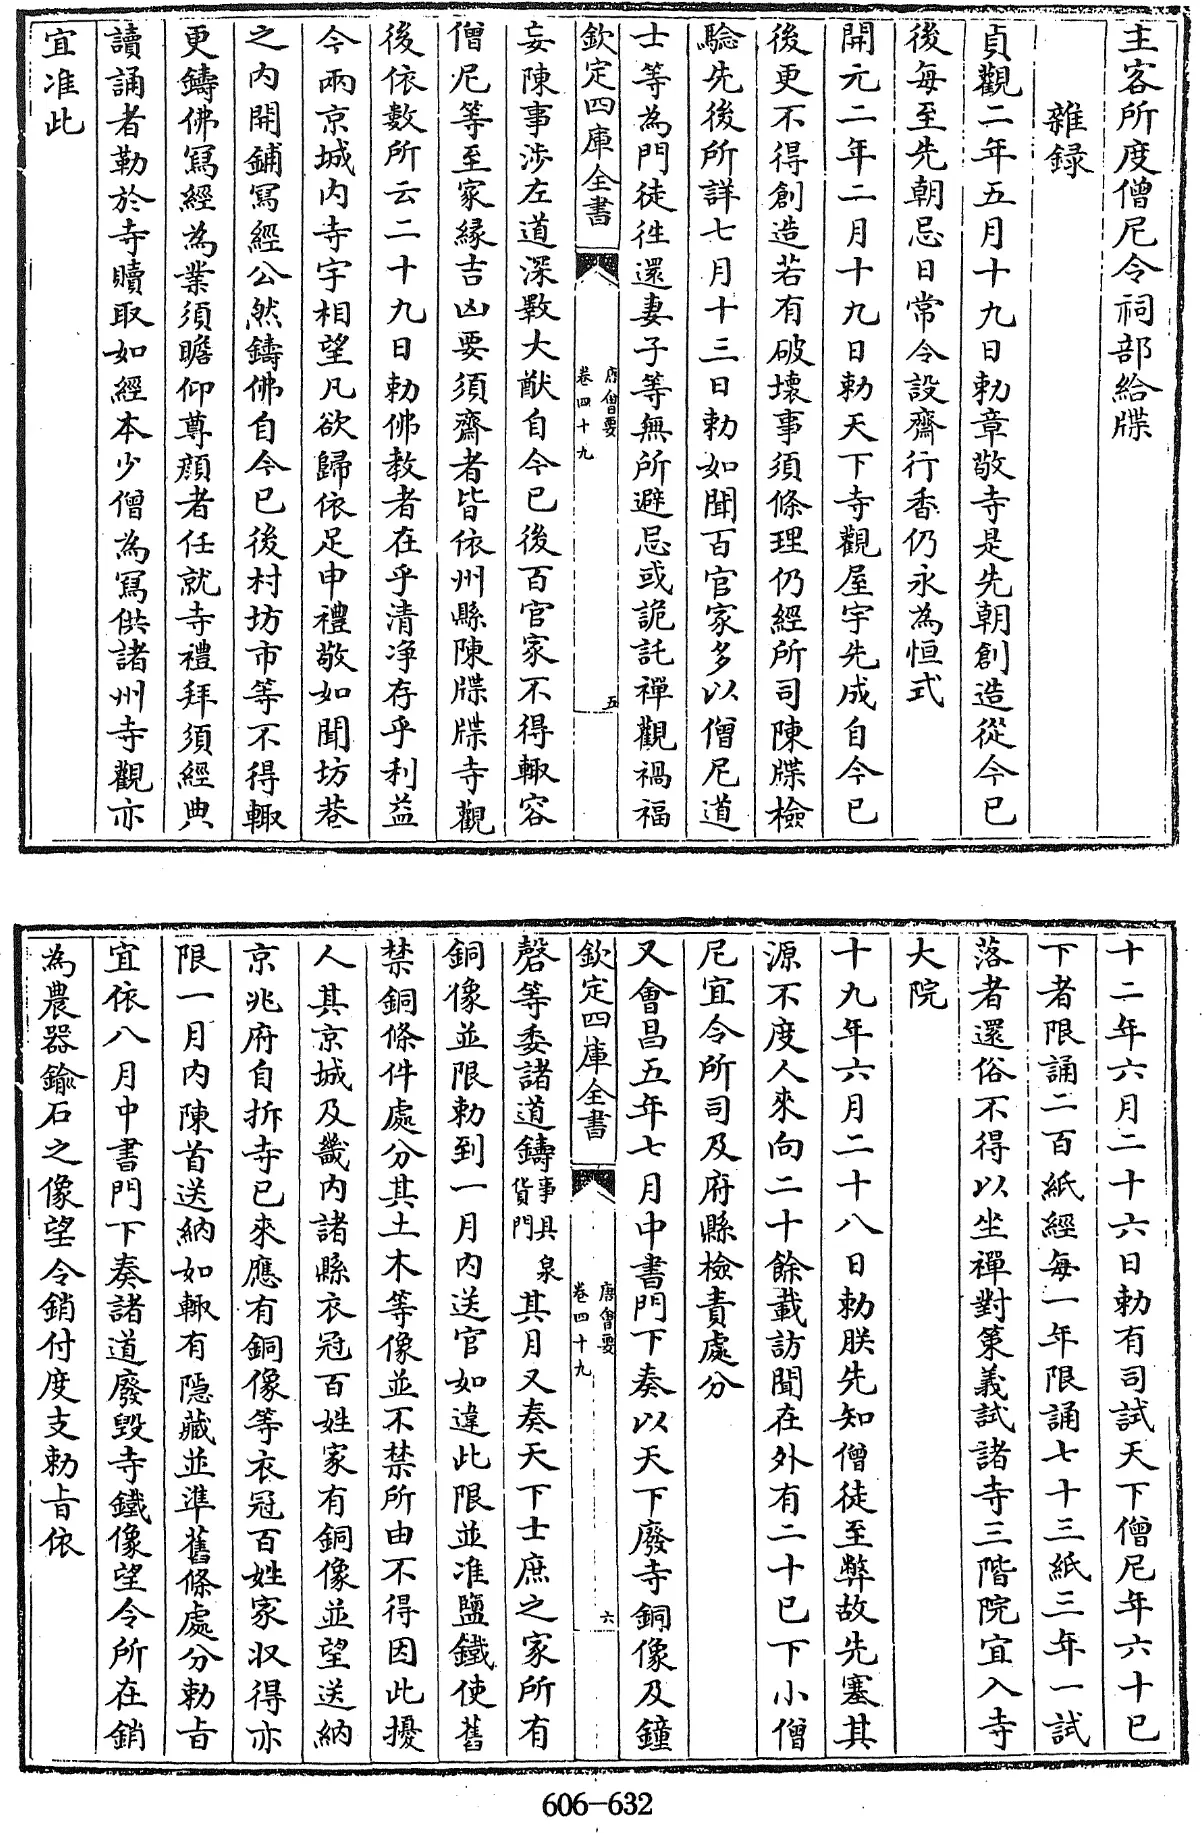 主客所度僧尼令祠部給牒
雜録
貞觀二年五月十九日勅章敬寺是先朝創造從今已
後每至先朝忌日常令設齋行香仍永為恒式
開元二年二月十九日勅天下寺觀屋宇先成自今已
後更不得創造若有破壞事須條理仍經所司陳牒檢
驗先後所詳七月十三日勅如聞百官家多以僧尼道
士等為門徒徃還妻子等無所避忌或詭託禪觀禍福
欽定四庫全書
唐會要
卷四十九
五
妄陳事涉左道深斁大猷自今已後百官家不得輙容
僧尼等至家緣吉凶要須齋者皆依州縣陳牒牒寺觀
後依數所云二十九日勅佛教者在乎清淨存乎利益
今兩京城内寺宇相望凡欲歸依足申禮敬如聞坊巷
之内開鋪寫經公然鑄佛自今已後村坊市等不得輙
更鑄佛寫經為業須瞻仰尊顔者任就寺禮拜須經典
讀誦者勒於寺贖取如經本少僧為寫供諸州寺觀亦
宜准此
十二年六月二十六日勅有司試天下僧尼年六十已
下者限誦二百紙經每一年限誦七十三紙三年一試
落者還俗不得以坐禪對策義試諸寺三階院宜入寺
大院
十九年六月二十八日勅朕先知僧徒至弊故先塞其
源不度人來向二十餘載訪聞在外有二十已下小僧
尼宜令所司及府縣檢責處分
又會昌五年七月中書門下奏以天下廢寺銅像及鐘
欽定四庫全書
唐會要
卷四十九
六
磬等委諸道鑄事具泉貨門其月又奏天下士庶之家所有
銅像並限勅到一月内送官如違此限並准鹽鐵使舊
禁銅條件處分其土木等像並不禁所由不得因此擾
人其京城及畿内諸縣衣冠百姓家有銅像並望送納
京兆府自拆寺已來應有銅像等衣冠百姓家收得亦
限一月内陳首送納如輙有隱藏並準舊條處分勅㫖
宜依八月中書門下奏諸道廢毁寺鐵像望令所在銷
為農器鍮石之像望令銷付度支勅㫖依
606-632